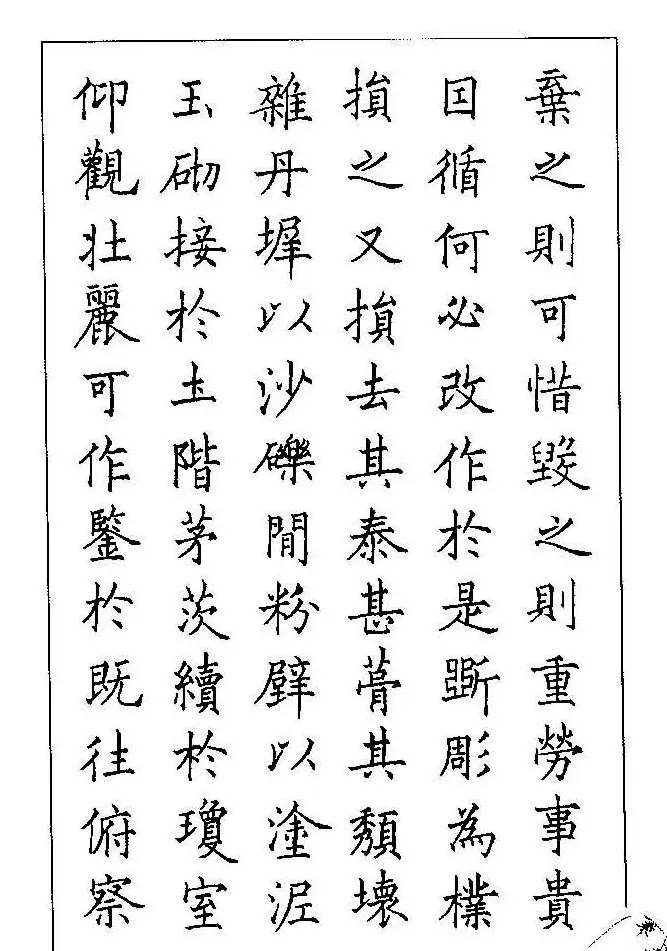 棄之則可惜毀之則重勞事貴
因循何必改作於是斲彫為樸
損之又損去其泰甚葺其頹壞
雜丹墀以沙礫間粉壁以塗泥
玉砌接於土階茅茨續於瓊室
仰觀壯麗可作鑒於既往俯察